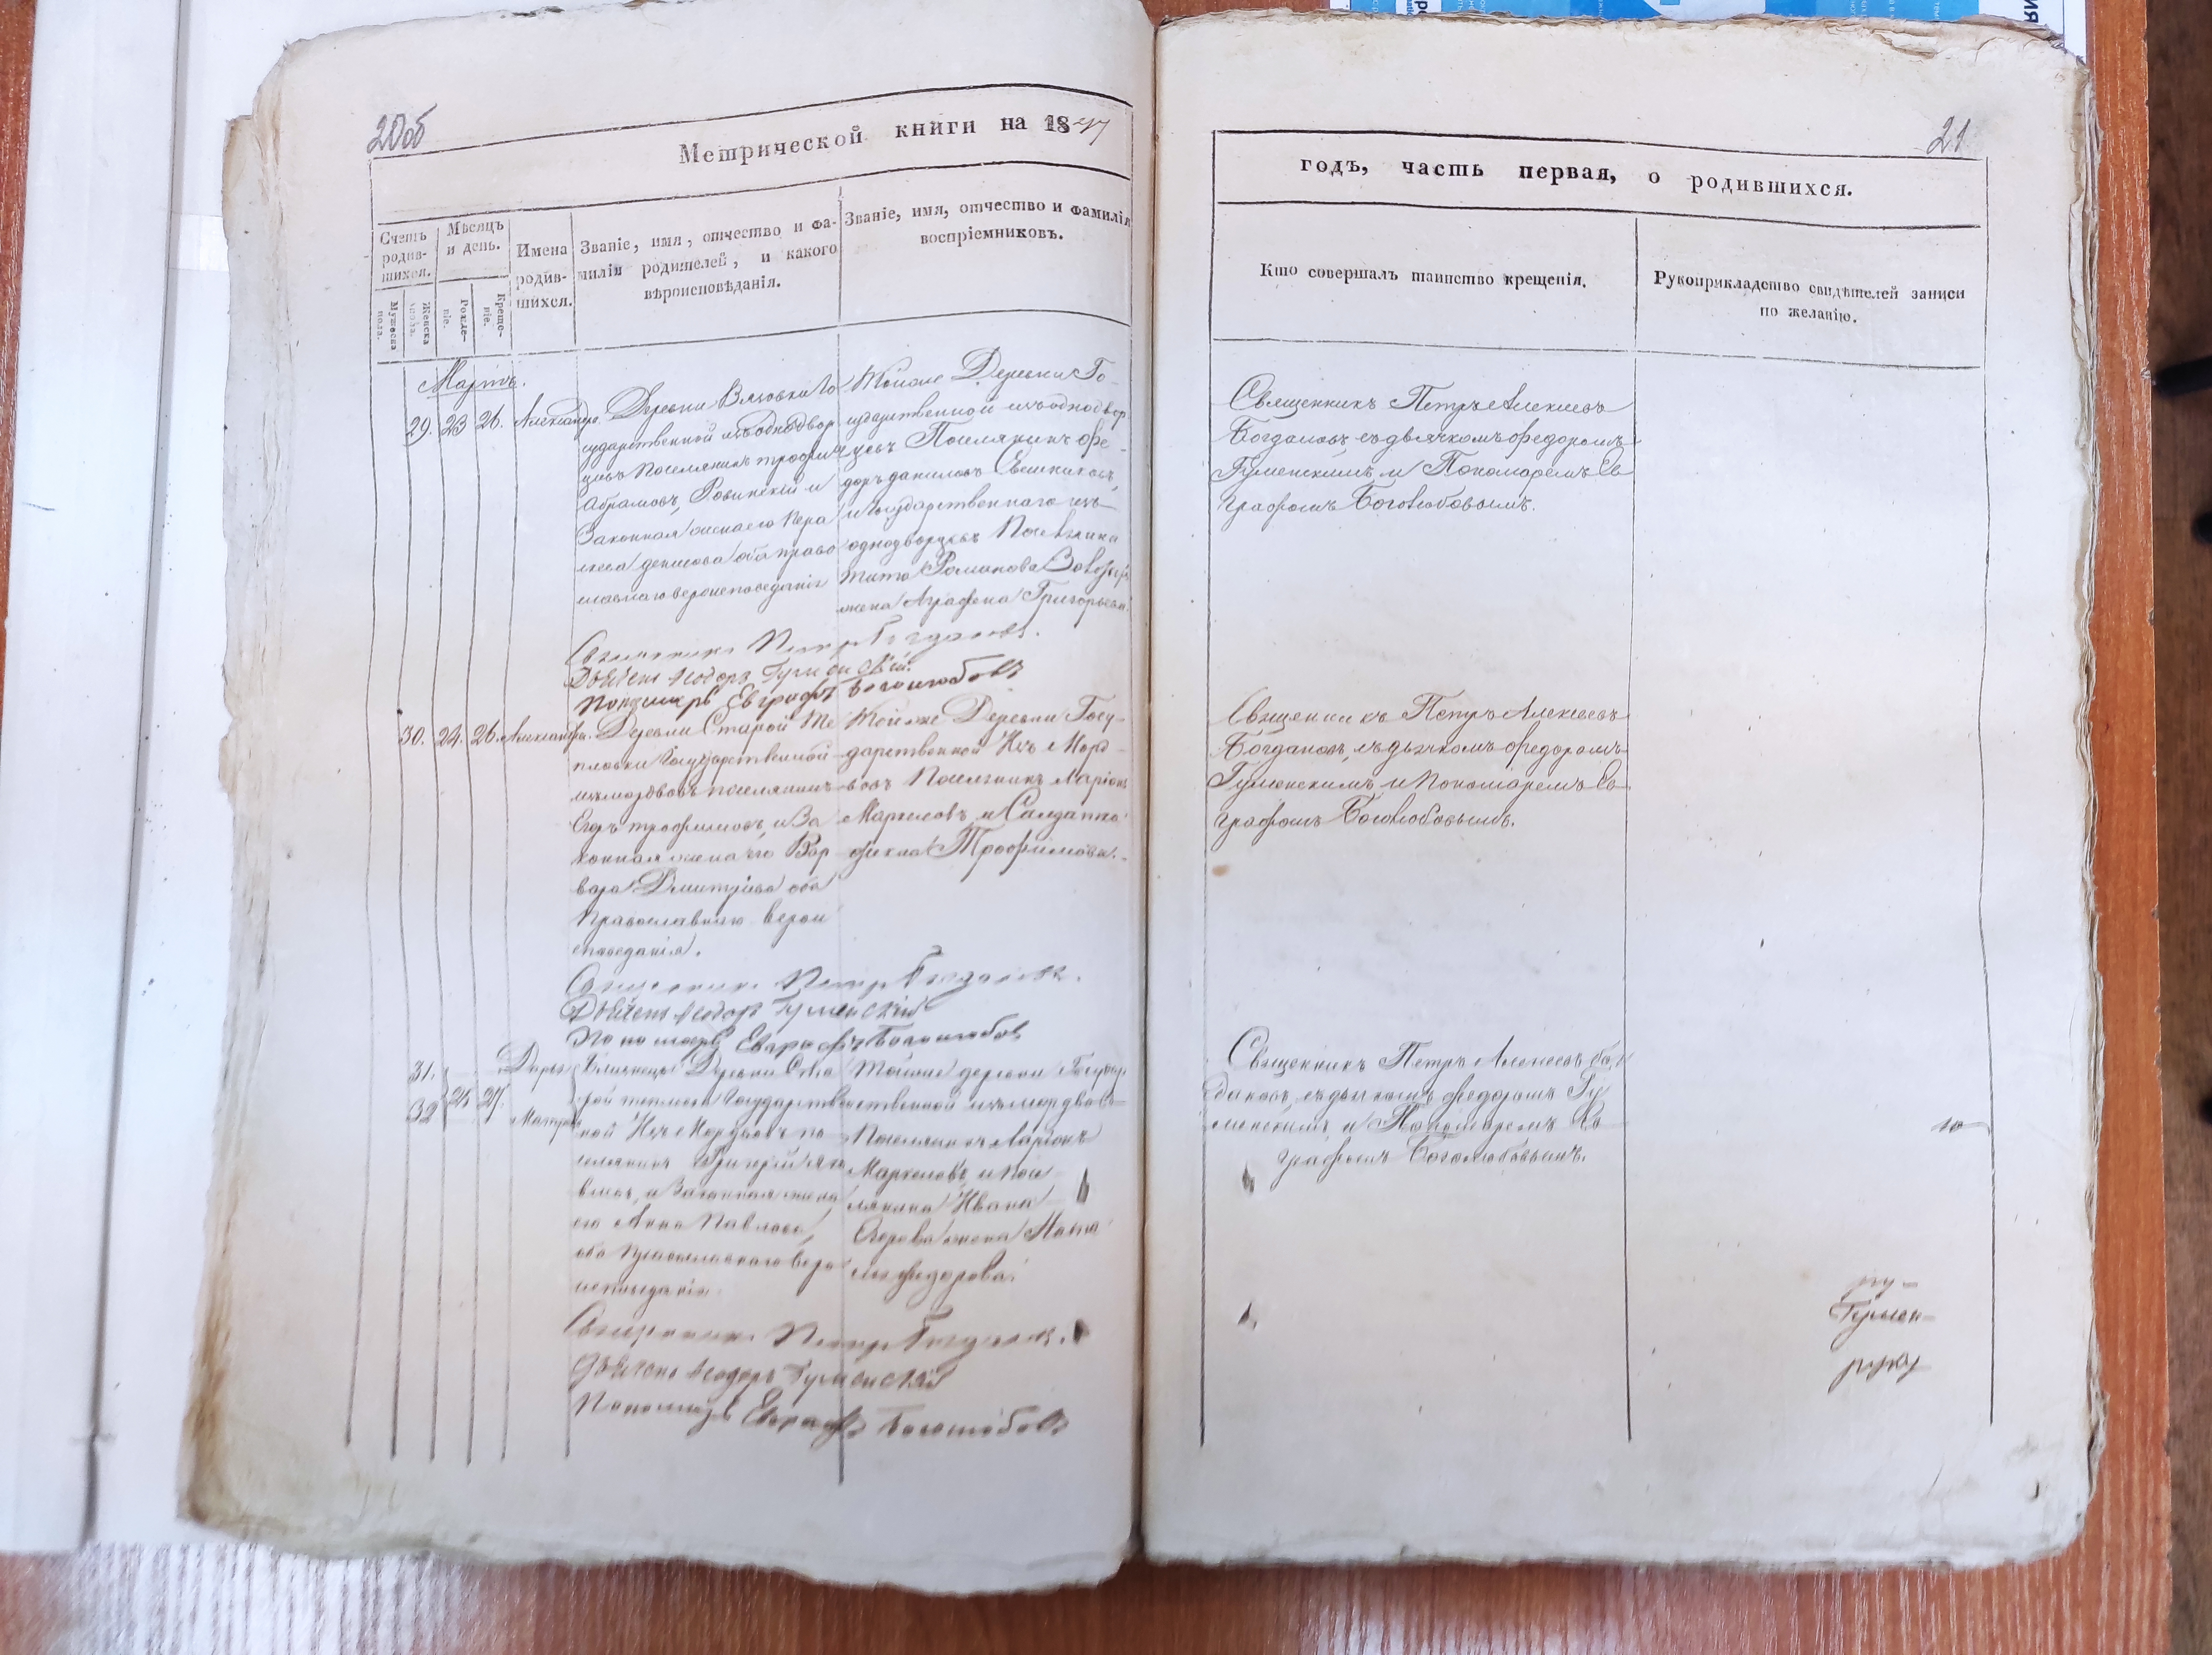 20об
Метрической книги на 1847
Счетъ родив-шихся.
Мужеска пола.
Женска пола.
Мѣсяцъ и день.
Рожде-ніе.
Креще-ніе.
Имена родив-шихся.
Званіе, имя, отчество и фа-
милія родителей, и какого
вѣроисповѣданія.
Званіе, имя, отчество и фамилія
воспріемниковъ.
Мартъ.
29. 23 26. Александра.
Деревни Вязовки Го
сударственной изъ однодвор
цовъ поселянинъ трофим
Абрамовъ, и
Законная жена его Пера
денисова оба право
славнаго вероисповеданія
Тойже Деревни Го-
сударственной изъ однодвор
цовъ Поселянинъ Фе-
доръ даниловъ
и Государственнаго изъ
однодворцовъ Поселянина
Тита Романова
жена Аграфена Григорьева.
Священникъ Петръ Богдановъ.
Дьячекъ Ѳеодоръ Гуменскій.
Пономарь Евграфъ Боголюбовъ
30. 24. 26. Александра.
Деревни Старой Те
пловки Государственной
изъ мордвовъ поселянинъ
Егоръ трофимовъ, и За
конная жена его Вар
вара Дмитріева оба
Православнаго верои
споведанія.
Тойже Деревни Госу-
дарственной Изъ Морд-
вовъ Поселянинъ Ларіонъ
Маркеловъ, и Солдатка
Трофимова.
Священникъ Петръ Богдановъ.
Дьячекъ Ѳеодоръ Гуменскій
Пономарь Евграфъ Боголюбовъ
31.
32
25 27.
Дарья
Матрона
Близнецы Деревни Ста
рой тепловки Государстве
ной Изъ Мордвовъ по
селянинъ Григорій
и Законная жена
его Анна Павлова,
оба Православнаго веро
исповеданія.
Тойже деревни Государ
ственной изъ мордвовъ
Поселянинъ Ларіонъ
Маркеловъ, и посе
лянина Ивана
Егорова жена
федорова.
Священникъ Петръ Богдановъ.
Дьячекъ Ѳеодоръ Гуменскій
Пономарь Евграфъ Боголюбовъ
21
годъ, часть первая, о родившихся.
Кто совершалъ таинство крещенія.
Рукоприкладство свидѣтелей записи
по желанію.
Священникъ Петръ Алексеевъ
Богдановъ съ дьячкомъ федоромъ
Гуменскимъ и Пономаремъ Ев
графомъ Боголюбовымъ.
Священникъ Петръ Алексеевъ
Богдановъ, съ дьячкомъ федоромъ
Гуменскимъ, и Пономаремъ Ев
графомъ Боголюбовымъ.
Священникъ Петръ Алексеевъ Бог
дановъ, съ дьячкомъ федоромъ Гу
менскимъ, и Пономаремъ Ев
графомъ Боголюбовымъ.
Гумен-
руку